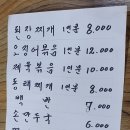 된장찌개 1인분 8.000
오징어볶음 1인분 12.000
제육볶음 1인분 10.000
동태찌개 1인분 10.000
백반
7.000
손만두국
6.000